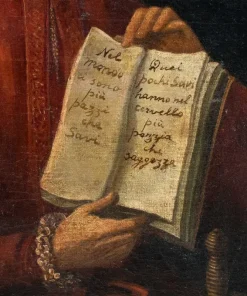 Nel
mondo
vi sono
più
pazzi
che
Savi
Quei
pochi Savi
hanno nel
cervello
più
pazzia
che
saggezza